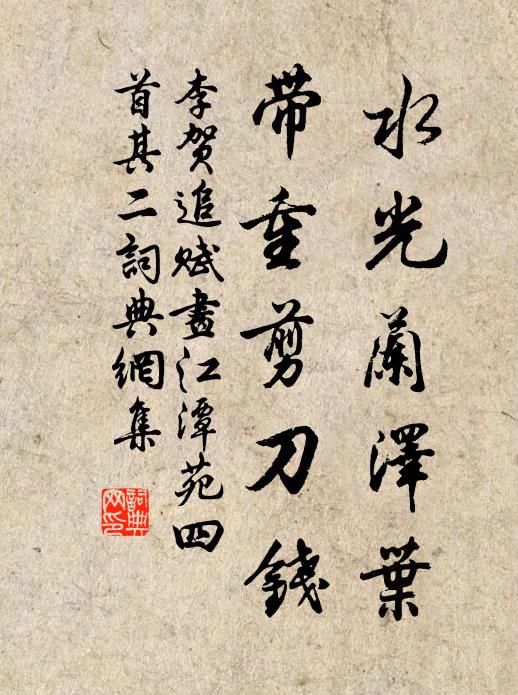 水光蘭澤葉
带重剪刀錢
李贺追赋畫江潭苑四
首其二詞典網集
詞典
网印